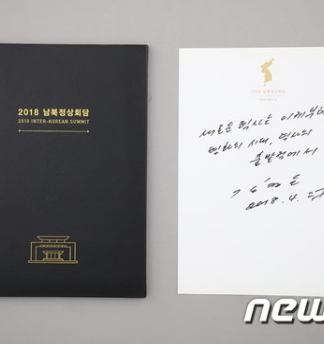 2018 남북정상회담
2018 INTER-KOREAN SUMMIT
2018 남북정상회담
새로운 력사는 이제부터
평화의 시대, 력사의
출발점에서
김정은
2018. 4. 27
news